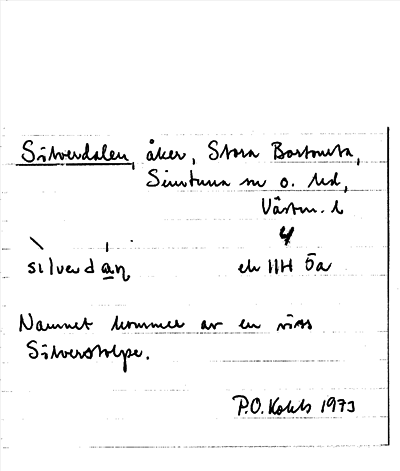 Silverdalen, åker, Stora Bastomta,
Simtuna sn o. hd,
Västm. l
4
silverdaṇ
Namnet kommer av en viss
Silverstolpe.
P.O. Kohls 1973